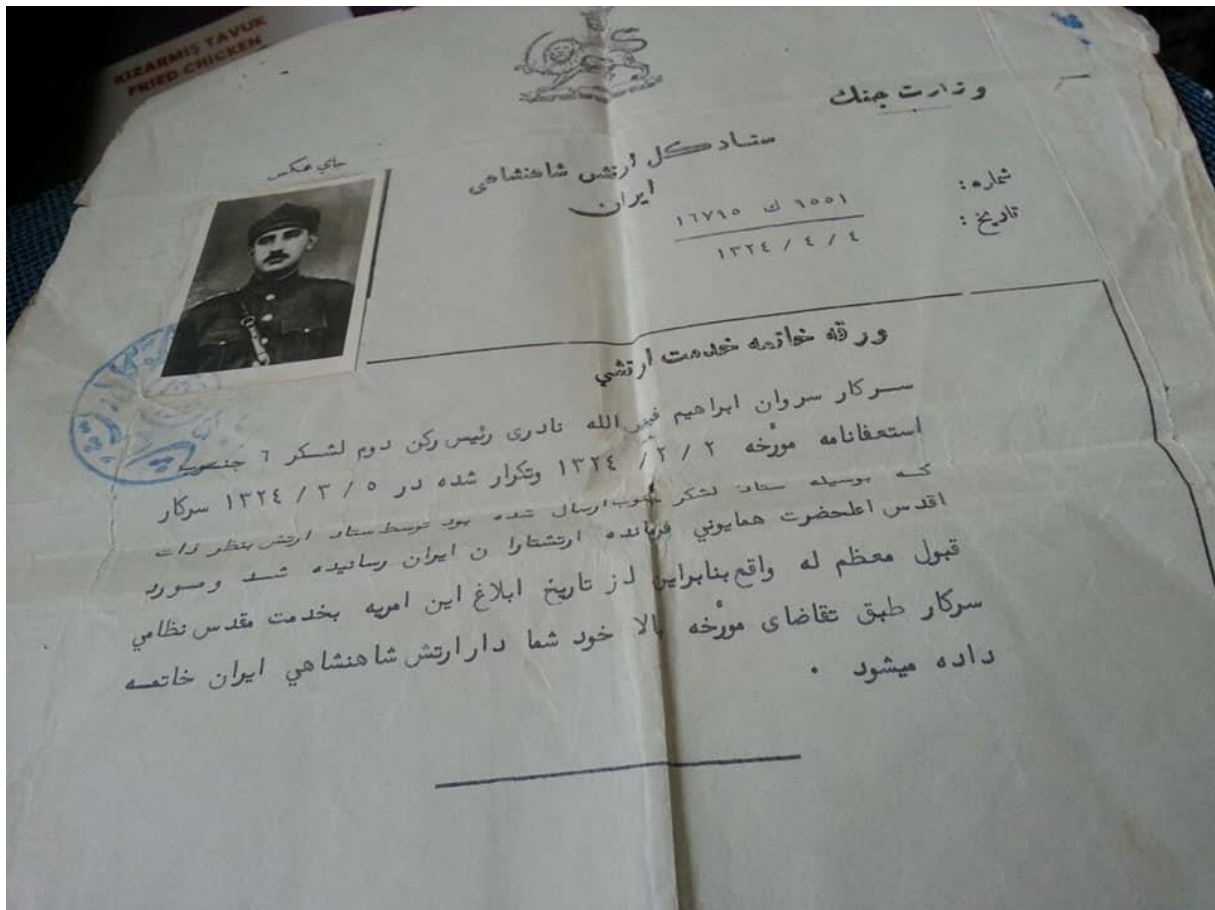 KIZARMIŞ TAVUK
FRIED CHICKEN
وزارت جنك
ستاد كل ارتش شاهنشاهی
ایران
جای عکس
شماره:
۹۵۵۱ ك ۱٦۷۹۵
تاریخ:
۱۳۲٤ / ٤ / ٤
ورقه خاتمه خدمت ارتشي
سركار سروان ابراهیم الله نادری رئیس ركن دوم لشكر ٦ جنوب
استعفانامه مورٌخه ۲ / ۲ / ۱۳۲٤ وتكرار شده در ٥ / ۳ / ۱۳۲٤ سرکار
كه بوسیله ستاد لشكر جنوب ارسال شده بود توسط ستاد ارتش بنظر ذات
اقدس اعلحضرت همایوني فرمانده ارتشتارا ن ایران رسانیده شد ومورد
قبول معظم له واقع بنابراین از تاریخ ابلاغ این امریه بخدمت مقدس نظامي
سرکار طبق تقاضای مورٌخه بالا خود شما دار ارتش شاهنشاهي ایران خاتمه
داده میشود .